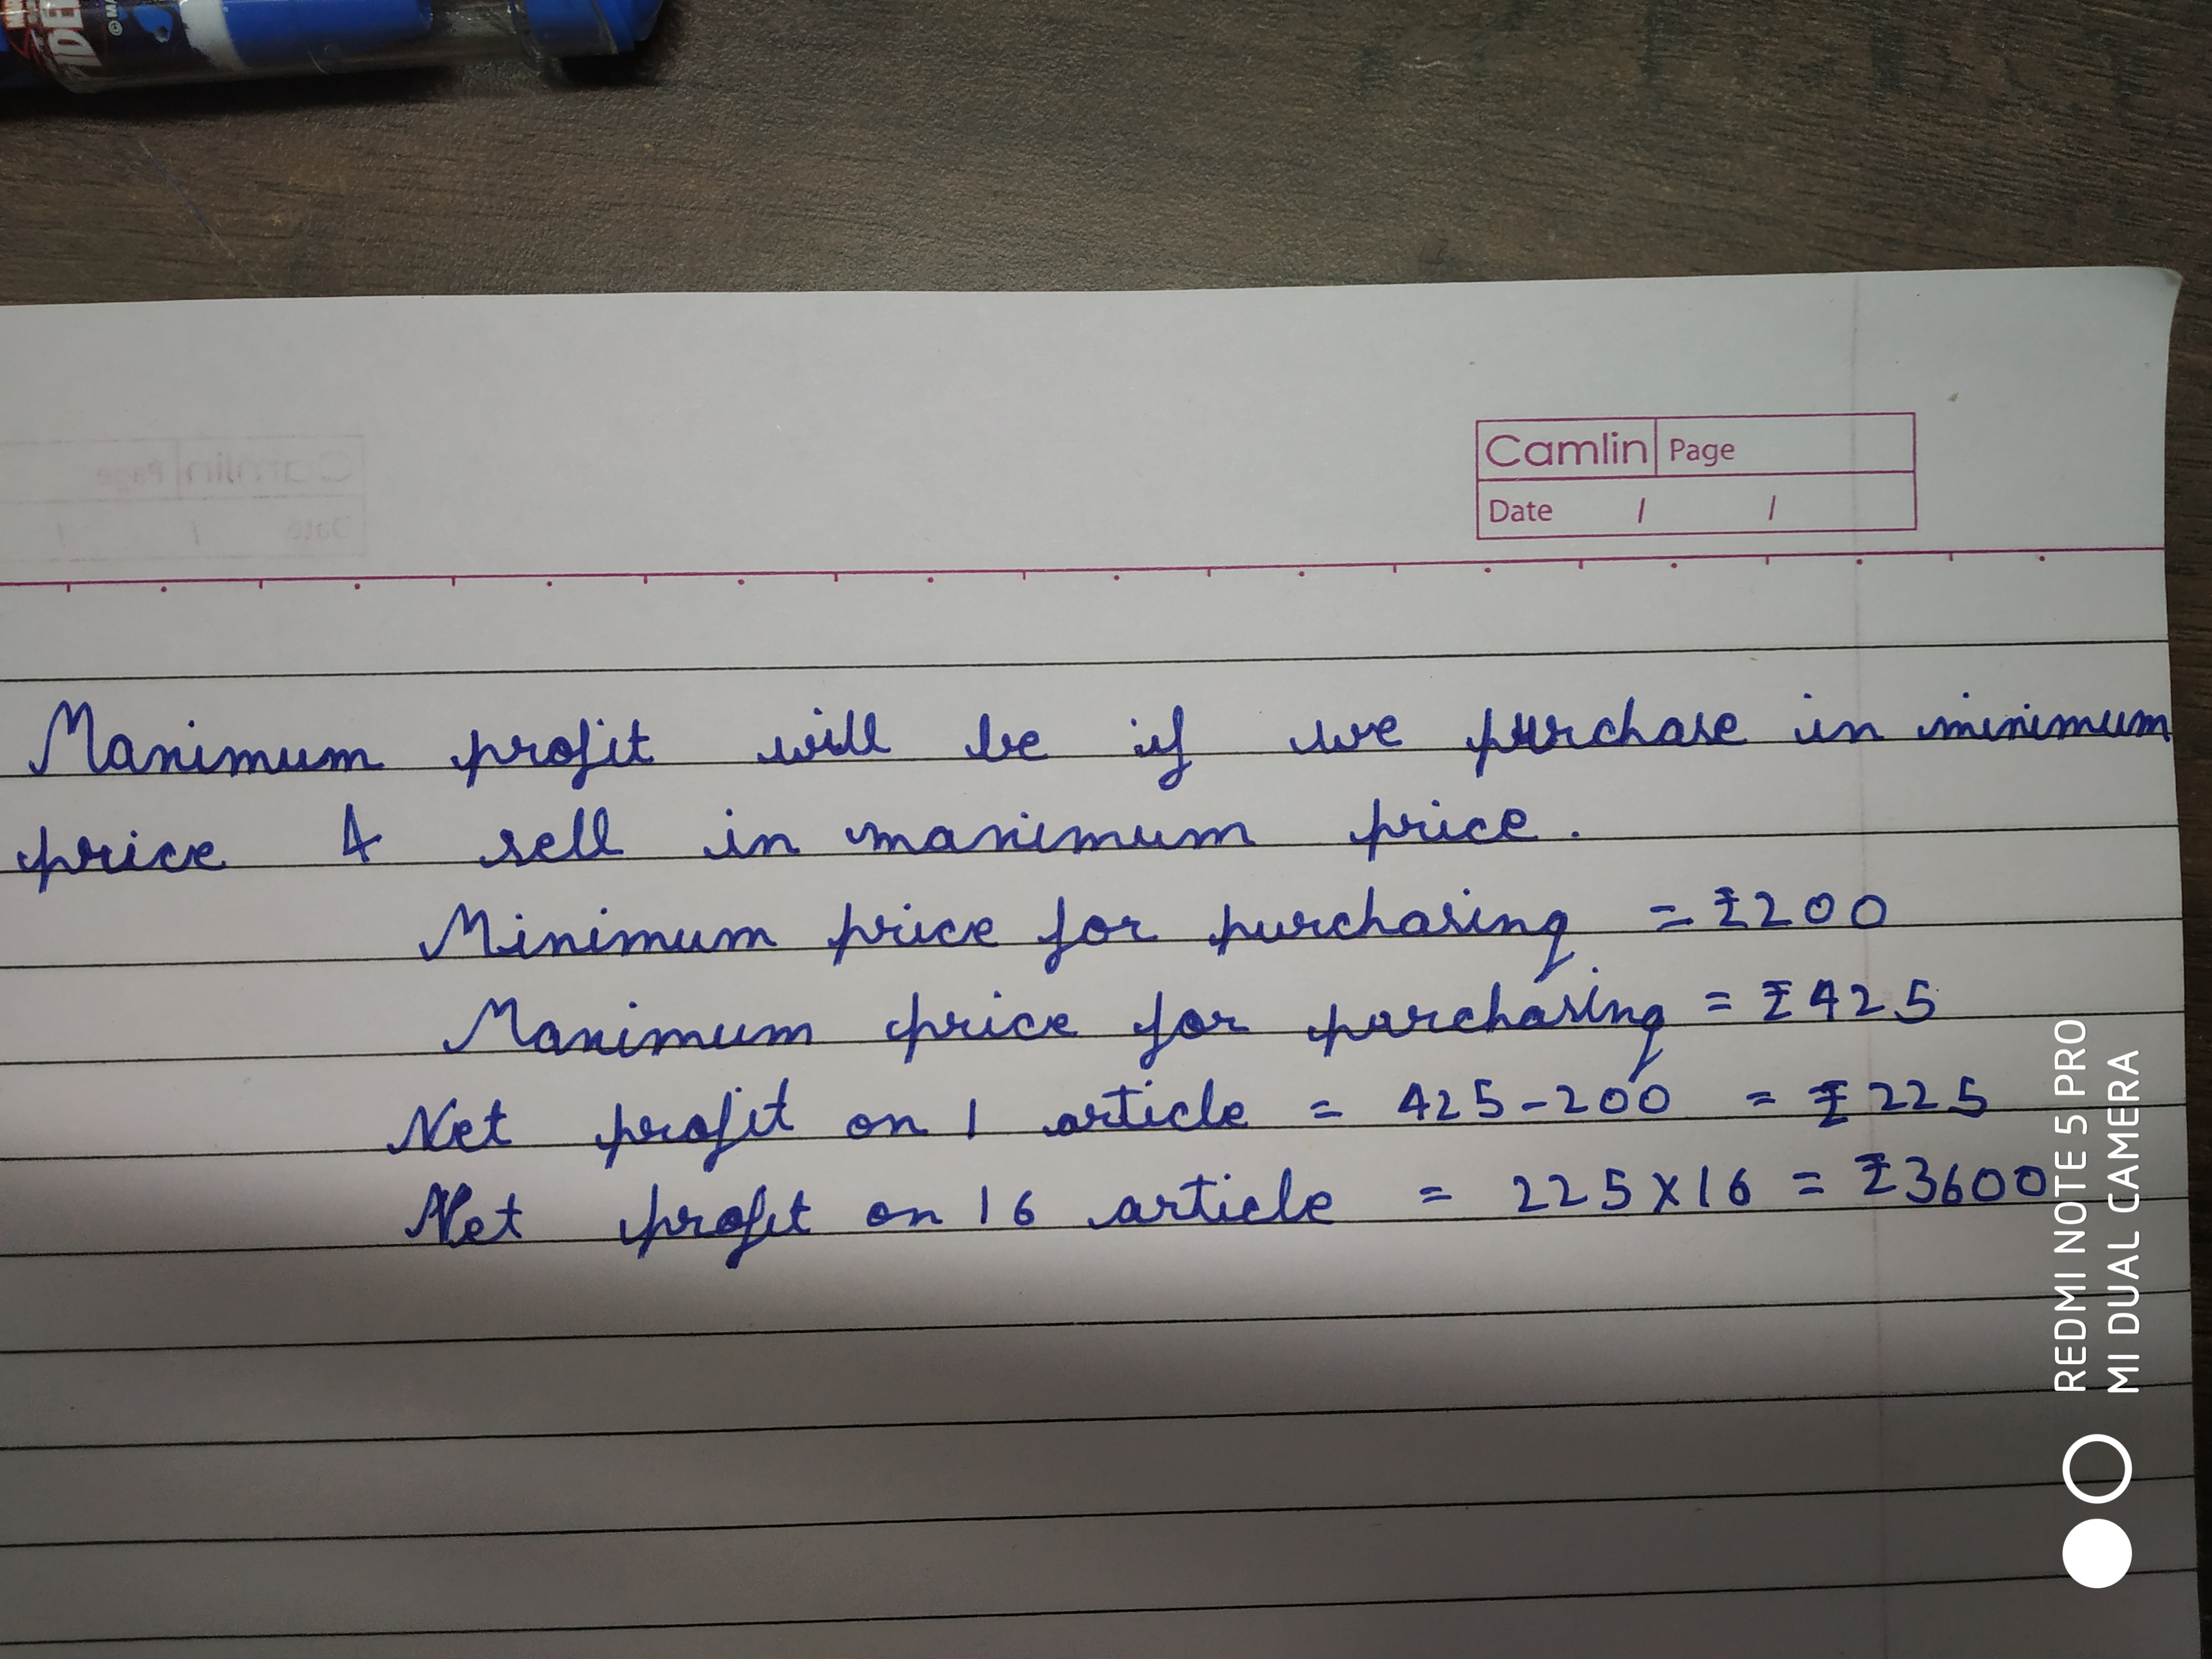 Camlin Page
Date / /
Maximum profit will be if we purchase in minimum
price & sell in maximum price.
Minimum price for purchasing = ₹200
Maximum price for purchasing = ₹425
Net profit on 1 article = 425-200 = ₹225
Net profit on 16 article = 225×16 = ₹3600
REDMI NOTE 5 PRO
MI DUAL CAMERA